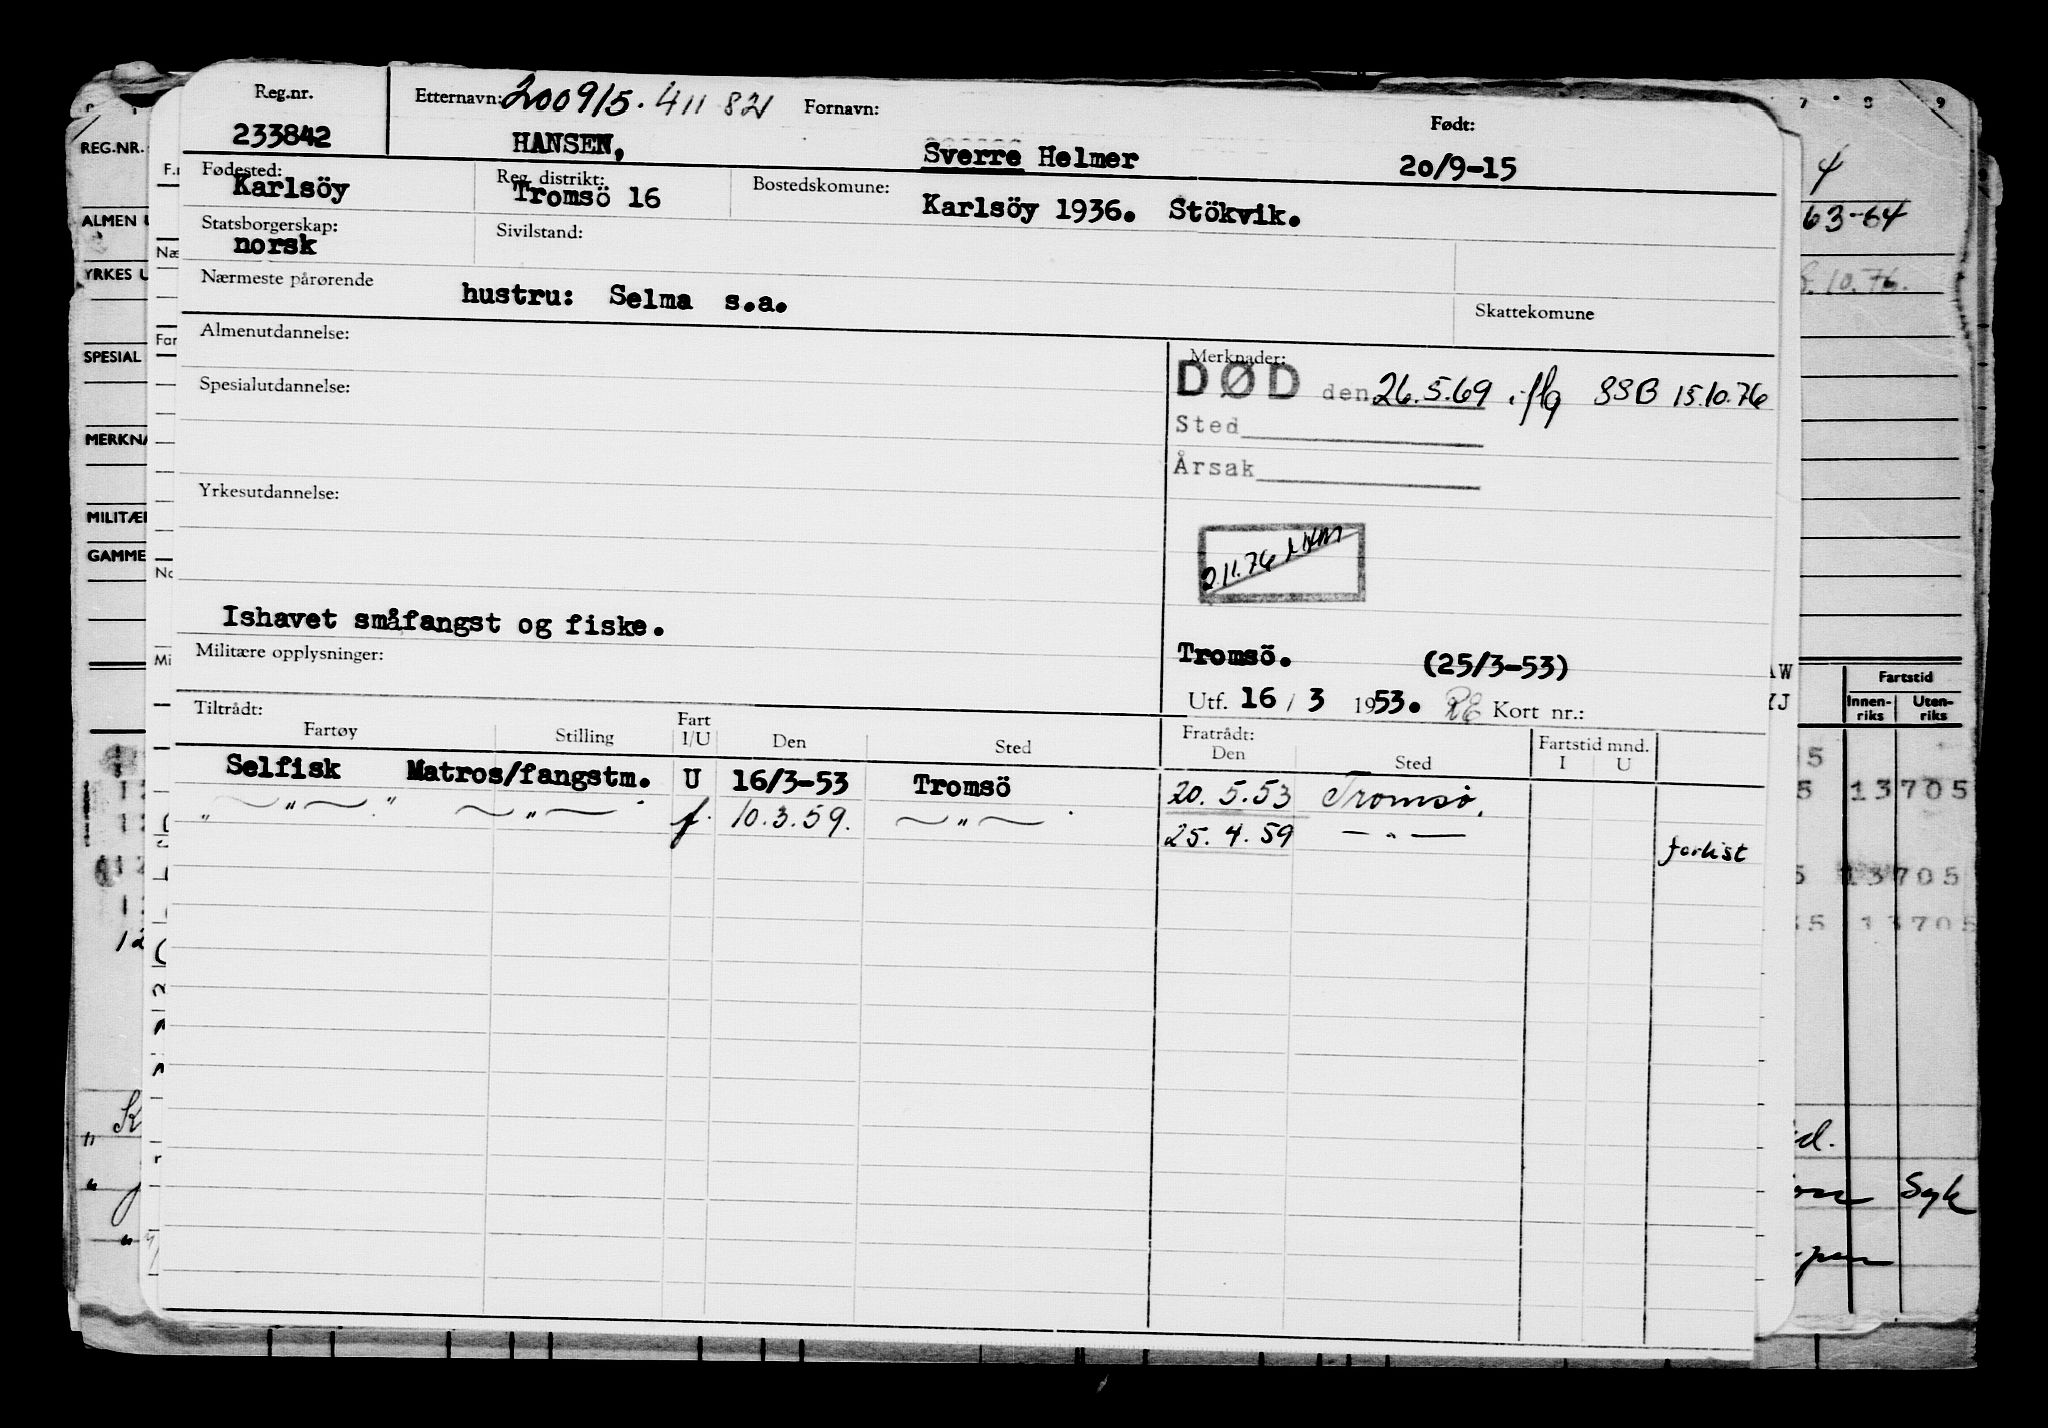 Reg.nr.
233842
Etternavn: 200915. 411 82
HANSEN,
Fornavn:
Sverre Helmer
Født:
20/9-15
Fødested:
Karlsöy
Reg. distrikt:
Tromsö 16
Bostedskomune:
Karlsöy 1936. Stökvik.
Statsborgerskap:
norsk
Sivilstand:
Nærmeste pårørende
hustru: Selma s.a.
Skattekomune
Almenutdannelse:
Spesialutdannelse:
Yrkesutdannelse:
Ishavet småfangst og fiske.
Militære opplysninger:
Merknader:
DØD den 26.5.69 iflg SSB 15.10.76
Sted
Årsak
2.11.76
Tromsö. (25/3-53)
Utf. 16 / 3 1953. Kort nr.:
Tiltrådt:
Fartøy Stilling Fart I/U Den Sted
Fratrådt:
Den Sted
Fartstid mnd.
I U
Selfisk Matros/fangstm. U 16/3-53 Tromsö 20.5.53 Tromsö.
" " " " f. 10.3.59. " 25.4.59 " forlist
REG.NR.
ALMEN U
YRKES U
SPESIAL
MERKNA
MILITÆR
GAMME
7 8 9
4
63-64
10.76.
Fartstid
Innen-riks Uten-riks
13705
13705
13705
Syk